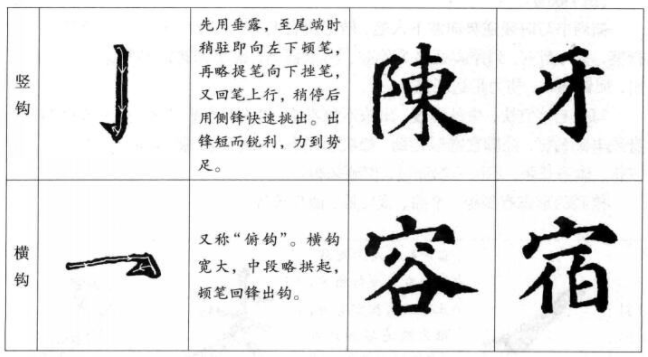 竖钩
先用垂露，至尾端时
稍驻即向左下顿笔，
再略提笔向下挫笔，
又回笔上行，稍停后
用侧锋快速挑出。出
锋短而锐利，力到势
足。
陳
牙
横钩
又称“俯钩”。横钩
宽大，中段略拱起，
顿笔回锋出钩。
容
宿